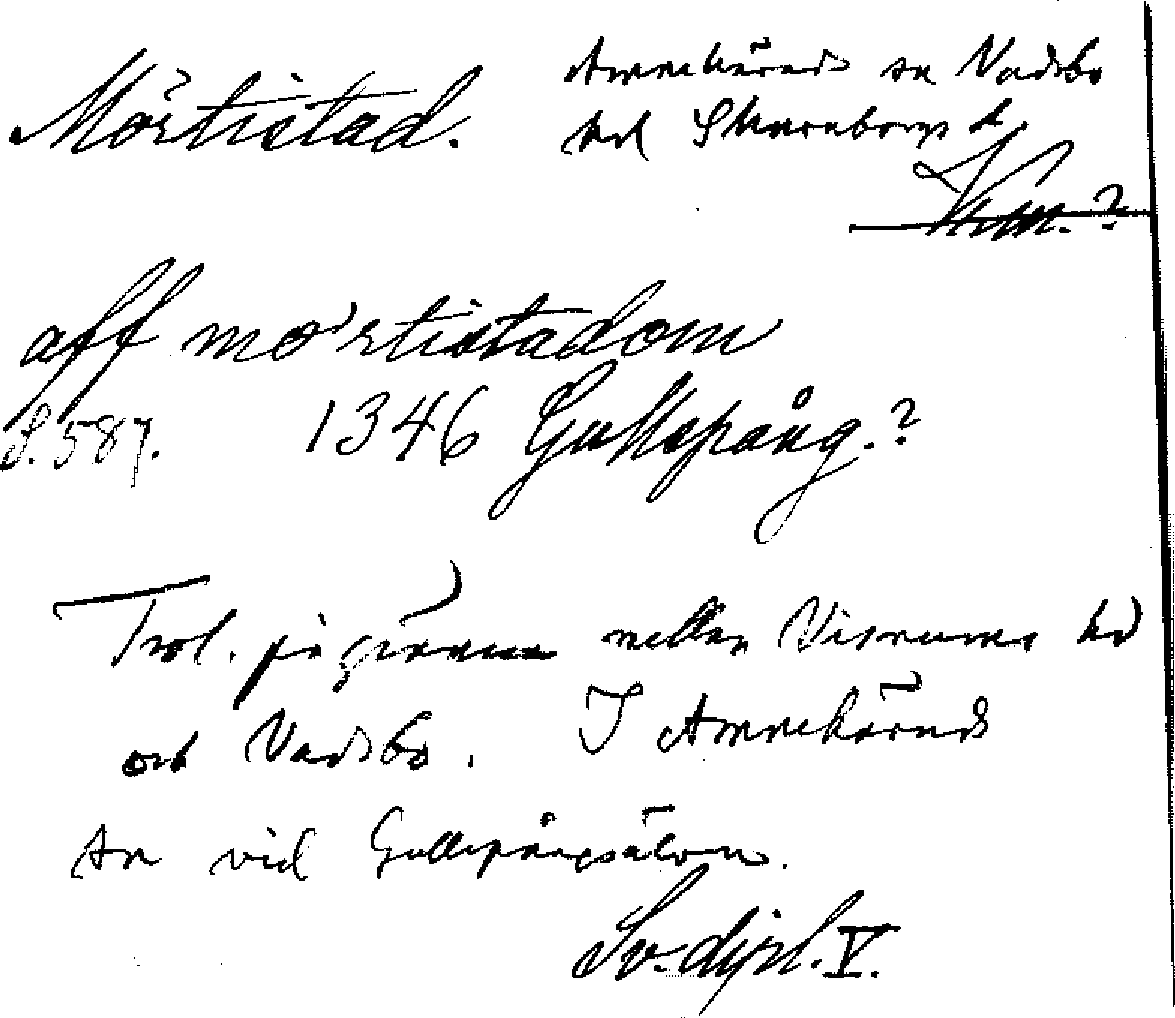 Mörtistad.
Amnehärads sn Vadsbo
hd Skaraborgs l.
Vrm.?
aff mörtistadom
S. 587. 1346 Gullspång.?
Trol. på gränsen mellan Visnums hd
och Vadsbo. I Amnehärads
sn vid Gullspångsälven.
Sv. dipl. V.